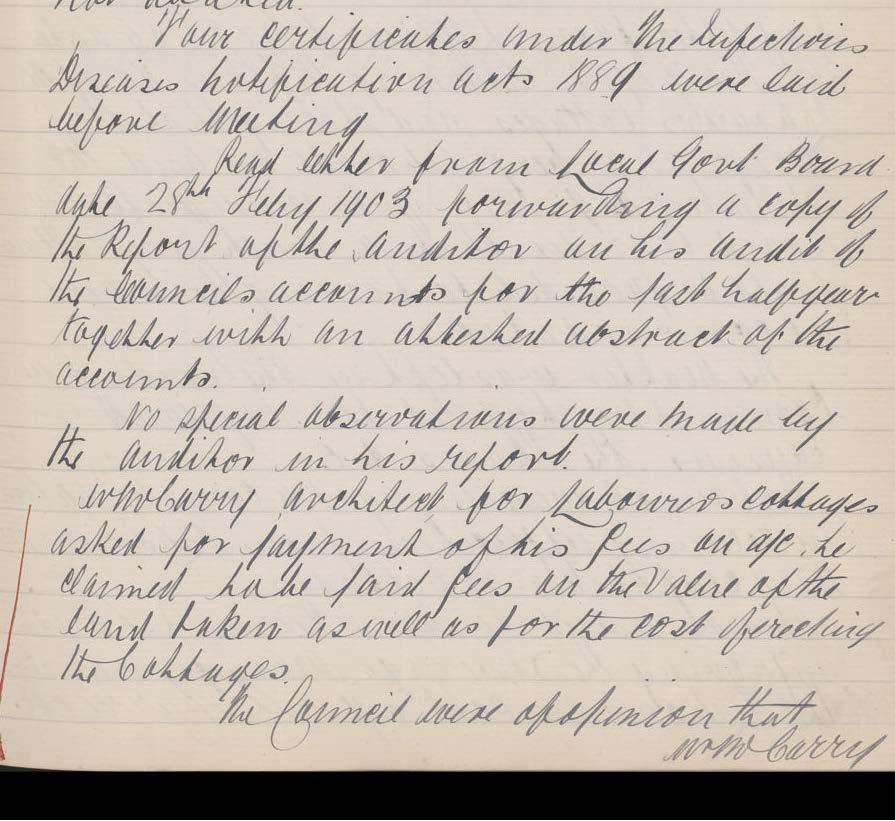 Four certificates under the Infectious
Diseases notification acts 1889 were laid
before Meeting
Read letter from Local Govt Board
date 28th Feby 1903 forwarding a copy of
the Report of the auditor on his audit of
the Councils accounts for the past halfyear
together with an attested abstract of the
accounts.
No special observations were made by
the auditor in his report.
Mr McCarry architect for Labourers cottages
asked for payment of his fees on a/c, he
claimed to be paid fees on the Value of the
land taken as well as for the cost of erecting
the Cottages.
The Council were of opinion that
Mr McCarry